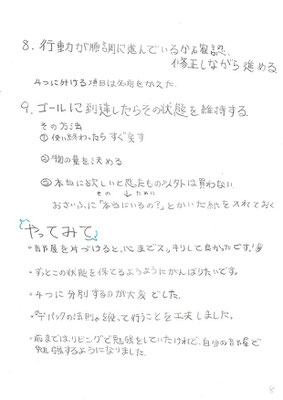 8. 行動が順調に進んでいるか確認、
修正しながら進める
4つに分ける項目は名前をかえた。
9. ゴールに到達したらその状態を維持する
その方法
①使い終わったらすぐ戻す
②物の量を決める
③本当に欲しいと思ったもの以外は買わない
その↓ために
おさいふに「本当にいるの?」とかいた紙を入れておく
やってみて
・お部屋を片づけると、心までスッキリして良かったです!
・ずっとこの状態を保てるようにがんばりたいです。
・4つに分別するのが大変でした。
の法則を使って行うことを工夫しました。
・前までは、リビングで勉強をしていたけれど、自分のお部屋で
勉強するようになりました。
8